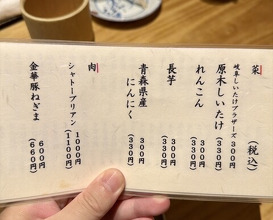 菜
(税込)
岐阜しいたけブラザーズ
原木しいたけ
300円
(330円)
れんこん
300円
(330円)
長芋
300円
(330円)
青森県産
にんにく
300円
(330円)
肉
シャトーブリアン
1000円
(1100円)
金華豚ねぎま
600円
(660円)